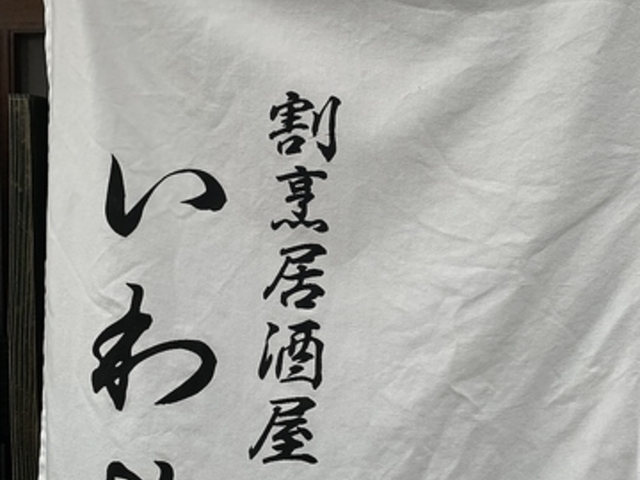 割烹居酒屋
いわ